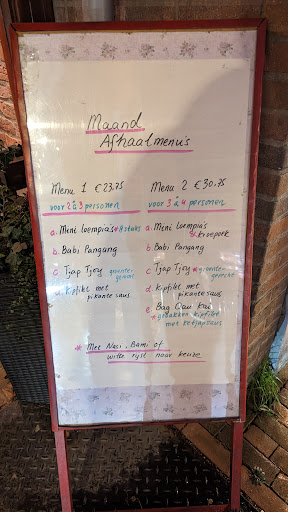 Maand
Afhaalmenu's
Menu 1 € 23.75
voor 2 à 3 personen
a. Meni loempia's * 8 stuks
b. Babi Pangang
c. Tjap Tjoy groente-
gerecht
d. Kipfilet met
pikante saus
Menu 2 € 30.75
voor 3 à 4 personen
a. Meni loempia's
& kroepoek
b. Babi Pangang
c. Tjap Tjoy * groente-
gerecht
d. Kipfilet met
pikante saus
e. Bag Kai
* gebakken kipfilet
met ketjapsaus
* Met Nasi, Bami of
witte rijst naar keuze